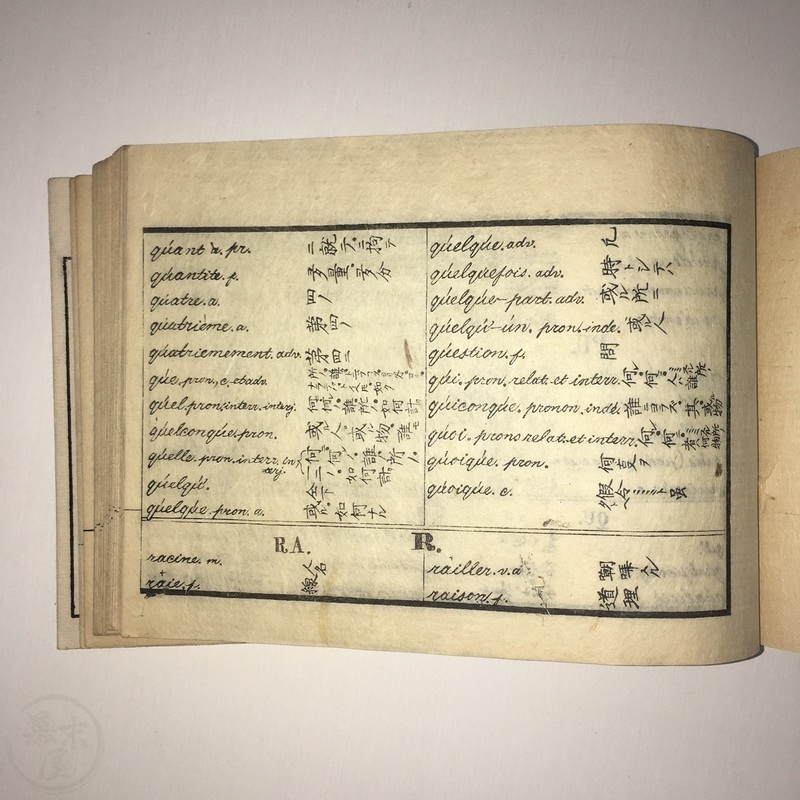 quant à. pr. ニ就テ.ニ拘テ
quantité. f. 多量.多分
quatre. a. 四ノ
quatrième. a. 第四ノ
quatriemement. adv. 第四ニ
que. pron. c. et adv.
quel. pron. interr. interj. 何.誰.所ノ.如何計
quelconque. pron. 或ル人.或ル物.誰モ
quelle. pron. interr. interj. 何.何人.誰.所ノ.如何計
quelqu'. 仝下
quelque. pron. a. 或ル.如何ナル
quelque. adv. 凡
quelquefois. adv. 時トシテハ
quelque-part. adv. 或ル所ニ
quelqu'-un. pron. inde. 或ル人
question. f. 問
qui. pron. relat. et interr. 何.何人.誰
quiconque. pronon. indé. 誰ニヨラズ.其.或物
quoi. prons relat. et interr. 何.何者
quoique. pron. 何
quoique. c. 假令
RA. R.
racine. m. 人名
raie. f. 線
railler. v. a 嘲哢スル
raison. f. 道理